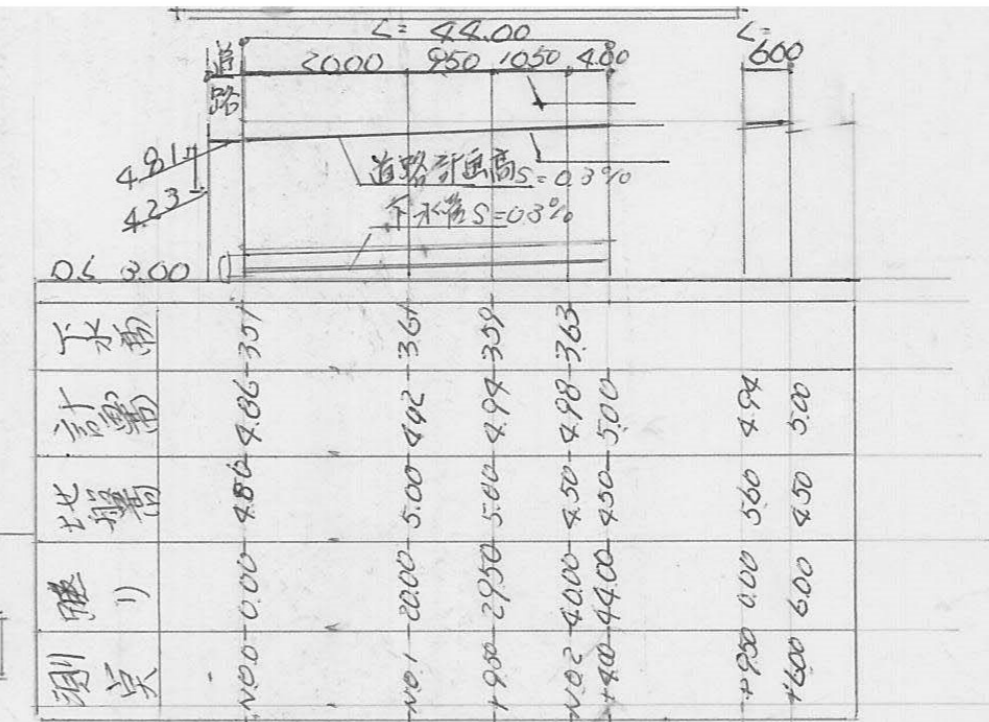 L= 44.00
L=
道路
2000 950 1050 4.00
600
4.81
4.23
道路計画高S=0.3%
下水管S=0.3%
D.L 3.00
下水高 3.51 3.61 3.59 3.63
計画高 4.86 4.92 4.94 4.98 5.00 4.94 5.00
地盤高 4.86 5.00 5.00 4.50 4.50 5.60 4.50
距り 0.00 20.00 29.50 40.00 44.00 0.00 6.00
測点 NO.0 NO.1 +9.50 NO.2 +4.00 +9.50 +6.00